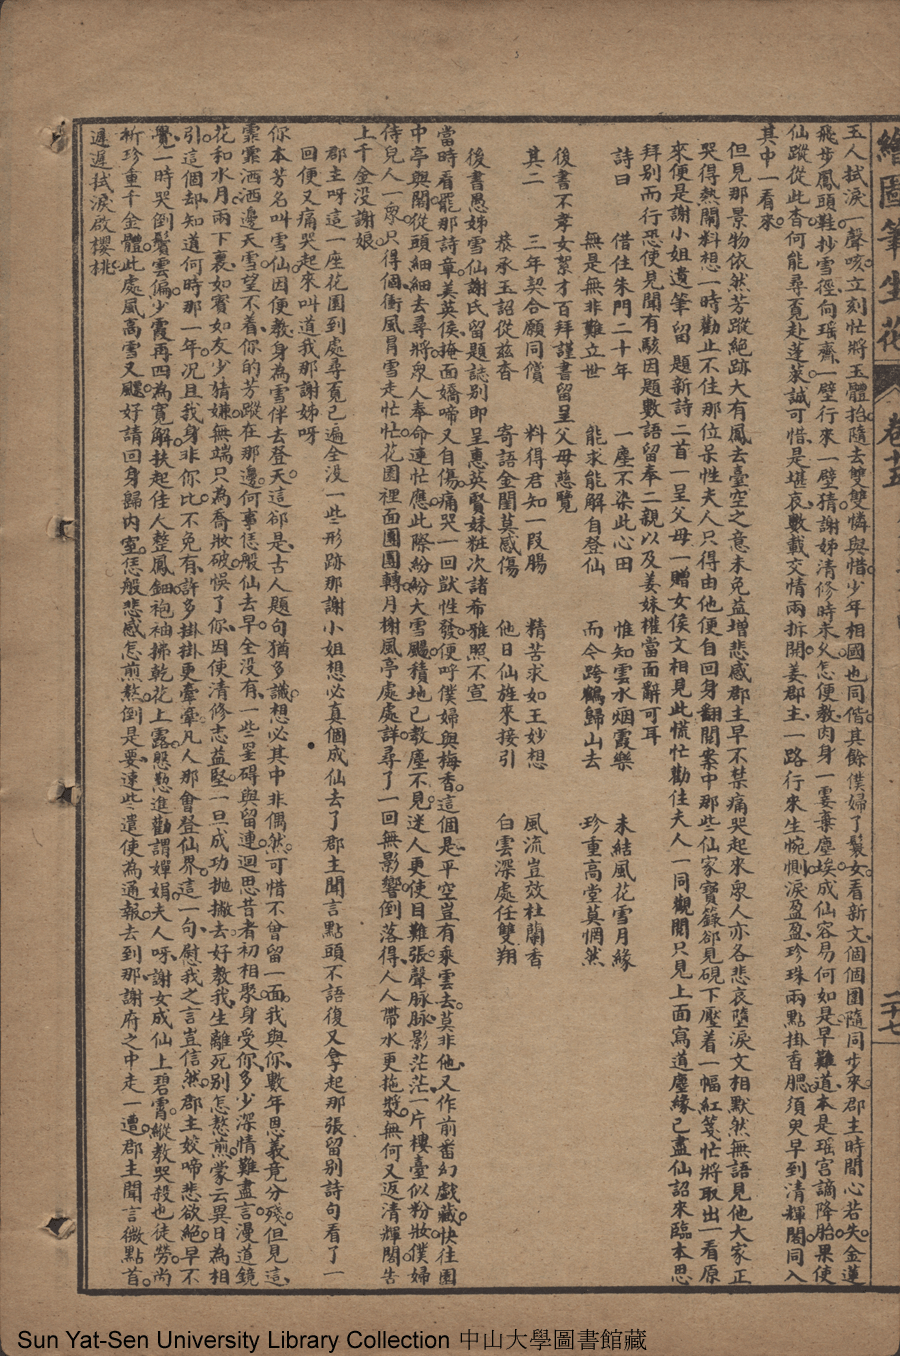 繪圖筆生花 卷十五 二十七
玉人拭淚一聲咳立刻忙將玉體抬隨去雙雙憐與惜少年相國也同偕其餘僕婦了鬟女看新文個個圍隨同步來郡主時間心若失金蓮
飛步鳳頭鞋抄雪徑向瑤齋一壁行來一壁猜謝姊清修時未久怎便教肉身一霎棄塵埃成仙容易何如是早難道本是瑶宮謫降胎果使
仙蹤從此杳何能尋覓赴蓬萊誠可惜是堪哀數載交情兩拆開姜郡主一路行來生惋惻淚盈盈珍珠兩點掛香腮須臾早到清輝閣同入
其中一看來
但見那景物依然芳蹤絕跡大有鳳去臺空之意未免益增悲感郡主早不禁痛哭起來眾人亦各悲哀墮淚文相默然無語見他大家正
哭得熱鬧料想一時勸止不住那位呆性夫人只得由他便自回身翻閱案中那些仙家寶籙卻見硯下壓着一幅紅箋忙將取出一看原
來便是謝小姐遺筆留題新詩二首一呈父母一贈女侯文相見此慌忙勸住夫人一同觀閱只見上面寫道塵緣已盡仙詔來臨本思
拜别而行恐使見聞有駭因題數語留奉二親以及姜妹權當面辭可耳
詩曰 借住朱門二十年 一塵不染此心田 惟知雲水烟霞樂 未結風花雪月緣
無是無非難立世 能求能解自登仙 而今跨鶴歸山去 珍重高堂莫惘然
後書不孝女絮才百拜謹書留呈父母慈覽
其二 三年契合願同償 料得君知一段腸 精苦求如王妙想 風流豈效杜蘭香
恭承玉詔從兹杳 寄語金閨莫感傷 他日仙旌來接引 白雲深處任雙翔
後書愚姊雪仙謝氏留題誌别即呈惠英賢妹粧次諸希雅照不宣
當時看罷那詩章美英侯掩面嬌啼又自傷痛哭一回獃性發便呼僕婦與梅香這個是平空豈有乘雲去莫非他又作前番幻戲藏快往園
中亭與閣從頭細細去尋將眾人奉命連忙應此際紛紛大雪颺積地已教塵不見迷人更使目難張聲脉脉影茫茫一片樓臺似粉妝僕婦
侍兒人一眾只得個衝風冒雪走忙忙花園裡面團團轉月榭風亭處處詳尋了一回無影響倒落得人人帶水更拖漿無何又返清輝閣告
上千金没謝娘
郡主呀這一座花園到處尋覓已遍全没一些形跡那謝小姐想必真個成仙去了郡主聞言點頭不語復又拿起那張留别詩句看了一
回便又痛哭起來叫道我那謝姊呀
你本芳名叫雪仙因便教身為雪伴去登天這卻是古人題句猶多讖想必其中非偶然可惜不曾留一面我與你數年恩義竟分殘但見這
霏霏洒洒邊天雪望不着你的芳蹤在那邊何事恁般仙去早全没有一些罣碍與留連迴思昔者初相聚身受你多少深情難盡言漫道鏡
花和水月兩下裏如賓如友少猜嫌無端只為喬妝破悮了你因使清修志益堅一旦成功抛撇去好教我生離死别怎熬煎蒙云異日為相
引這個却知道何時那一年况且我身非你比不免有許多掛掛更牽牽凡人那會登仙界這一句慰我之言豈信然郡主姣啼悲欲絕早不
覺一時哭倒鬢雲偏少霞再四為寬解扶起佳人整鳳鈿袍袖掃乾花上露慇懃進勸謂嬋娟夫人呀謝女成仙上碧霄縱教哭殺也徒勞尚
祈珍重千金體此處風高雪又飃好請回身歸内室恁般悲感怎煎熬倒是要速些遣使為通報去到那謝府之中走一遭郡主聞言微點首
遲遲拭淚啟櫻桃
Sun Yat-Sen University Library Collection 中山大學圖書館藏